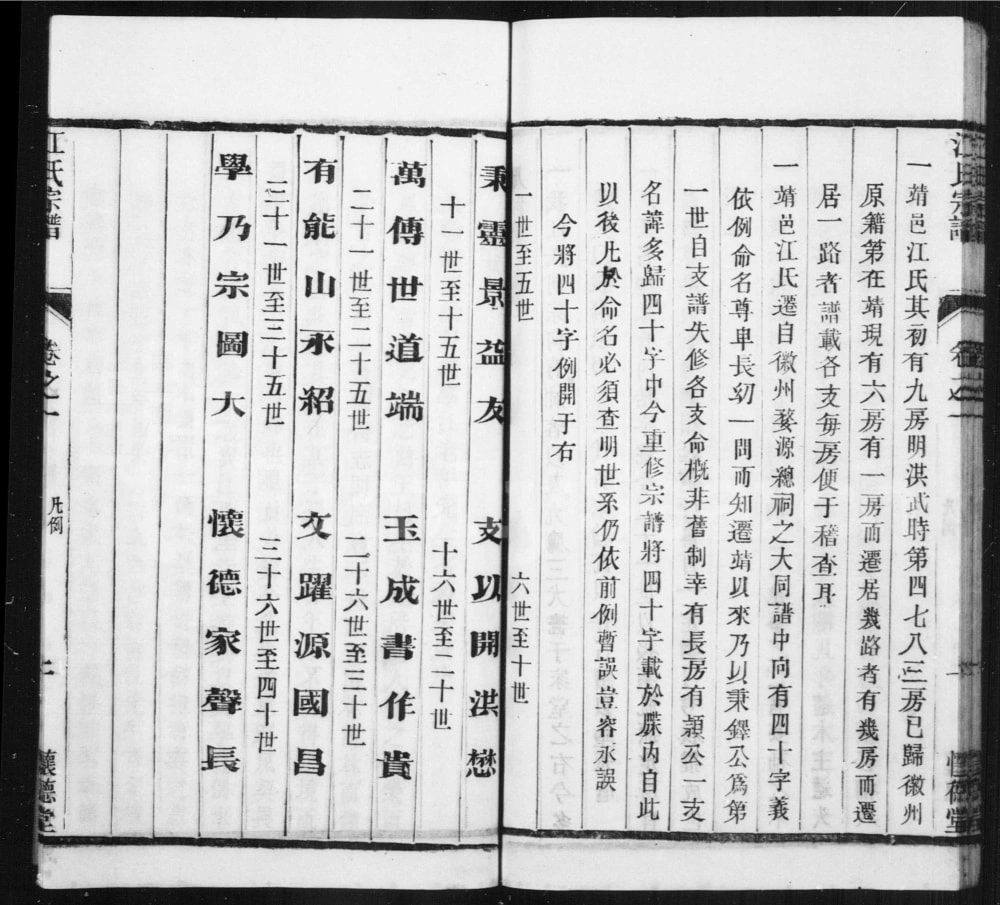 江氏宗譜
卷之一
一
懷德堂
一靖邑江氏其初有九房明洪武時第四七八三房已歸徽州
原籍第在靖現有六房有一房而遷居幾路者有幾房而遷
居一路者譜載各支每房便于稽查耳
一靖邑江氏遷自徽州婺源總祠之大同譜中向有四十字義
依例命名尊卑長幼一問而知遷靖以來乃以秉鐸公爲第
一世自支譜失修各支命概非舊制幸有長房有頴公一支
名諱多歸四十字中今重修宗譜將四十字載於牒內自此
以後凡於命名必須查明世系仍依前例暫誤豈容永誤
今將四十字例開于右
一世至五世 六世至十世
秉靈景益友 支以開洪懋
十一世至十五世 十六世至二十世
萬傳世道端 玉成書作貴
二十一世至二十五世 二十六世至三十世
有能山永紹 文躍源國昌
三十一世至三十五世 三十六世至四十世
學乃宗圖大 懷德家聲長
江氏宗譜
卷之一
凡例
懷德堂